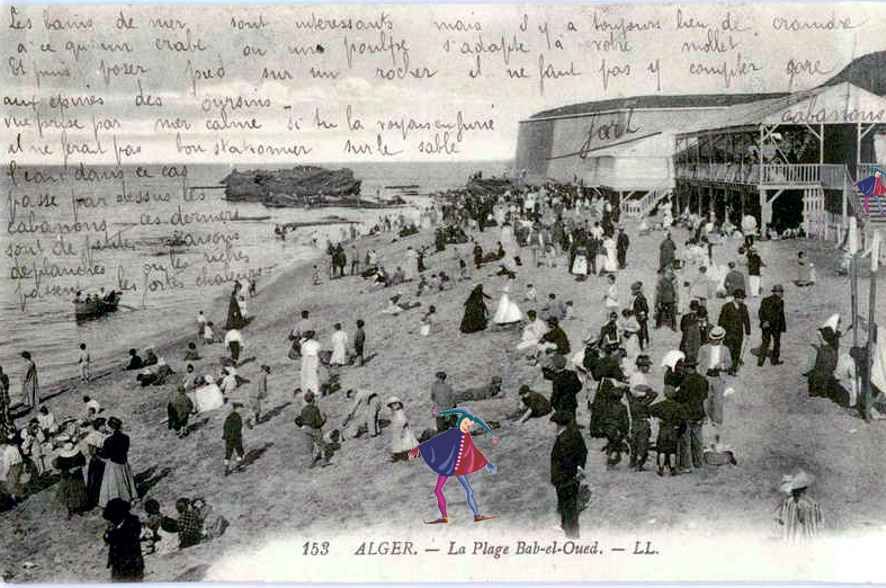 Les bains de mer sont interessants mais il y a toujours lieu de craindre
à ce qu'un crabe ou une poulpe s'adapte à votre mollet
Et puis poser pied sur un rocher il ne faut pas y compter gare
aux épines des oursins
vue prise par mer calme Si tu la voyais en furie
il ne ferait pas bon stationner sur le sable
l'eau dans ce cas
passe par dessus les
cabanons ces derniers
sont de petites maisons
de planches où les riches
passent les fortes chaleurs
fort
cabanons
153 ALGER. — La Plage Bab-el-Oued. — LL.